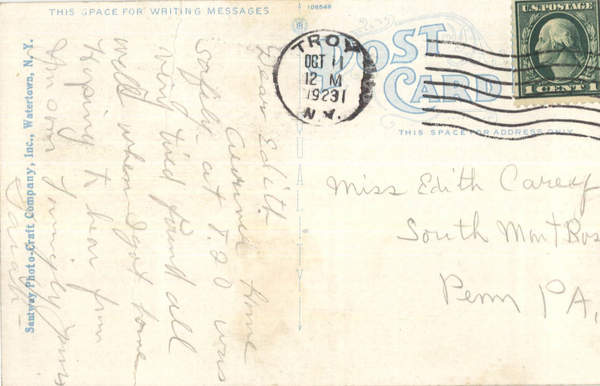 THIS SPACE FOR WRITING MESSAGES
106549
POST
CARD
THIS SPACE FOR ADDRESS ONLY
TROY
OCT 11
12 M
19231
N.Y.
U.S. POSTAGE
1 CENT 1
Santway Photo-Craft Company, Inc., Watertown, N. Y.
Dear Edith
Arrived Home
Safely at 7.20 was
very tired found all
well when I got home
Hoping to hear from
you soon
Sarah
Miss Edith Carey
South Mont
Penn PA,